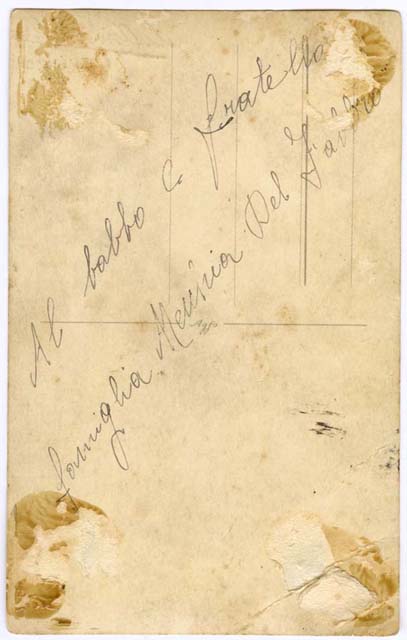 Al babbo e fratello
famiglia Menisia Del Fabbro